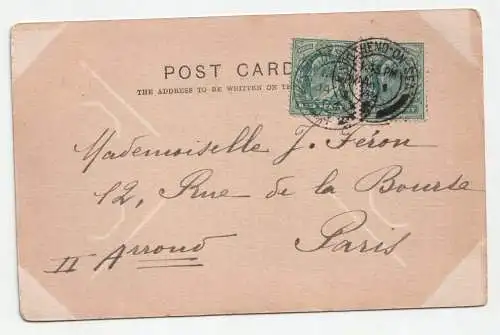 POST CARD
THE ADDRESS TO BE WRITTEN ON TH
Mademoiselle J. Féron
12, Rue de la Bourse
II Arrond
Paris